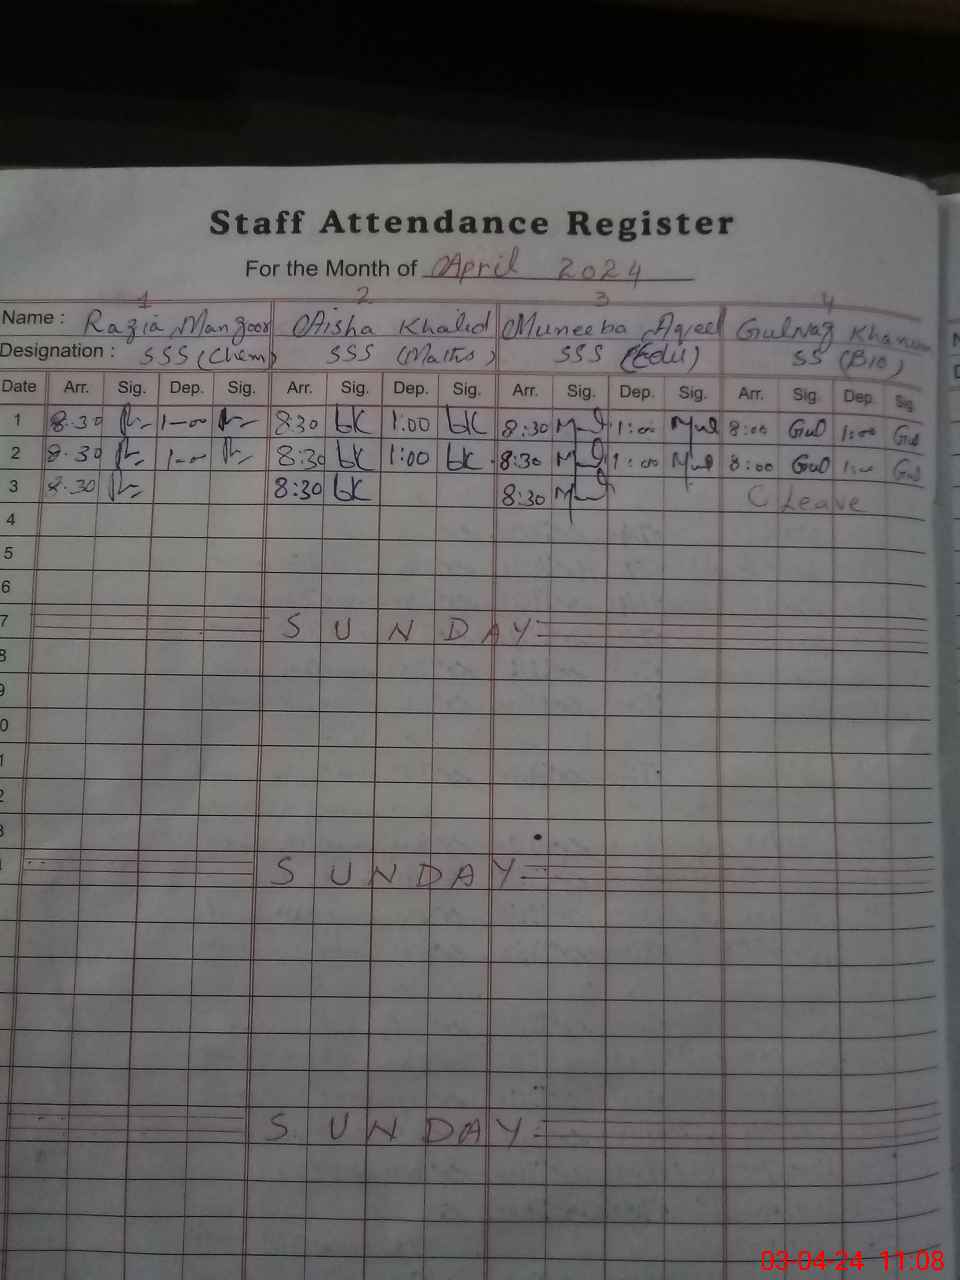 Staff Attendance Register
For the Month of April 2024
1 2 3 4
Name : Razia Manzoor Aisha Khalid Muneeba Aqeel Gulnaz Khanum
Designation : SSS (Chem) SSS (Maths) SSS (Edu) SS (BIO)
Date Arr. Sig. Dep. Sig. Arr. Sig. Dep. Sig. Arr. Sig. Dep. Sig. Arr. Sig. Dep. Sig
1 8.30 1-00 8:30 1:00 8:30 1:00 8:00 Gul 1:00 Gul
2 8.30 1-00 8:30 1:00 8:30 1:00 8:00 Gul 1:00 Gul
3 8.30 8:30 8:30 C Leave
4
5
6
7 SUNDAY
8
9
0
1
2
3
SUNDAY
SUNDAY
03-04-24 11:08